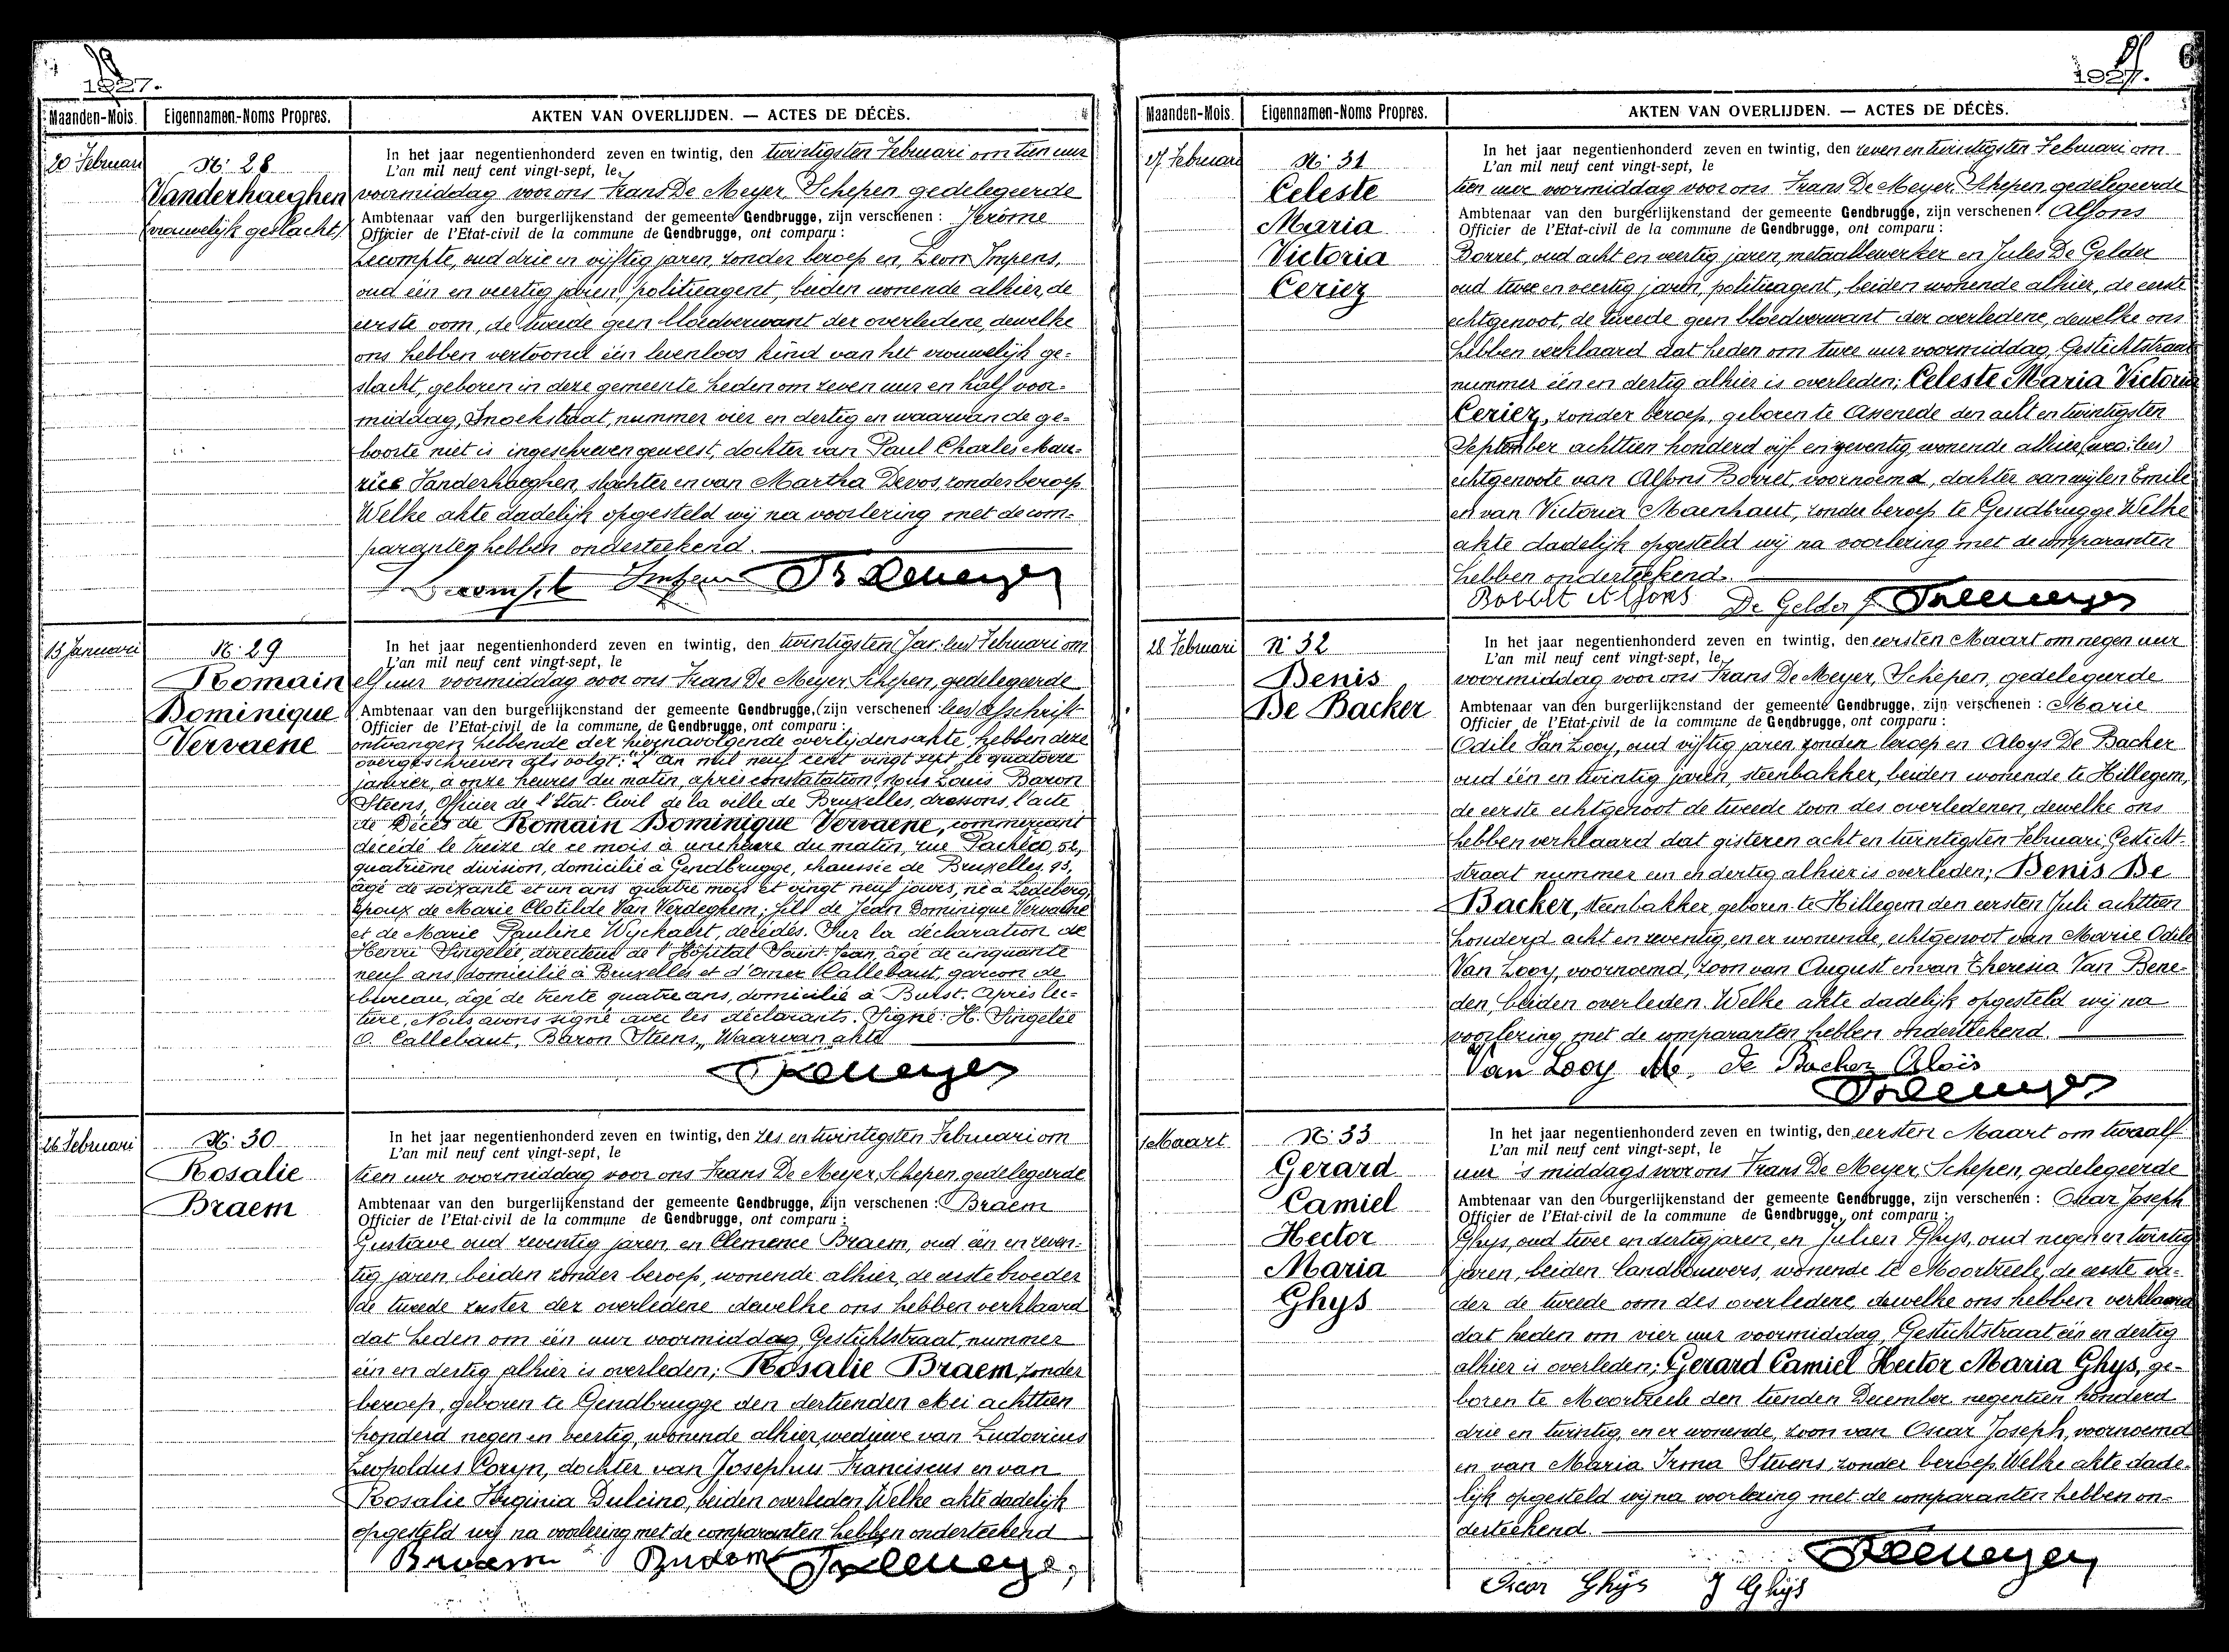 1927.
Maanden-Mois. Eigennamen-Noms Propres. AKTEN VAN OVERLIJDEN. — ACTES DE DÉCÈS.
20 Februari
N: 28
Vanderhaeghen
(vrouwelijk geslacht)
In het jaar negentienhonderd zeven en twintig, den twintigsten Februari om tien uur
L'an mil neuf cent vingt-sept, le
voormiddag voor ons Frans De Meyer, Schepen, gedelegeerde
Ambtenaar van den burgerlijkenstand der gemeente Gendbrugge, zijn verschenen : Jérôme
Officier de l'Etat-civil de la commune de Gendbrugge, ont comparu :
Lecompte, oud drie en vijftig jaren, zonder beroep en, Leon Impens,
oud één en veertig jaren, politieagent, beiden wonende alhier, de
eerste oom, de tweede geen bloedverwant der overledene, dewelke
ons hebben vertoond één levenloos kind van het vrouwelijk ge-
slacht, geboren in deze gemeente heden om zeven uur en half voor-
middag, Snoekstraat, nummer vier en dertig en waarvan de ge-
boorte niet is ingeschreven geweest, dochter van Paul Charles Mau-
rice Vanderhaeghen, slachter en van Martha Devos, zonder beroep
Welke akte dadelijk opgesteld wij na voorlezing met de com-
paranten hebben onderteekend.
13 Januari
N: 29
Romain
Dominique
Vervaene
In het jaar negentienhonderd zeven en twintig, den twintigsten (Jar. lees) Februari om
L'an mil neuf cent vingt-sept, le
elf uur voormiddag voor ons Frans De Meyer, Schepen, gedelegeerde
Ambtenaar van den burgerlijkenstand der gemeente Gendbrugge, (zijn verschenen lees) afschrift
Officier de l'Etat-civil de la commune, de Gendbrugge, ont comparu :
ontvangen hebbende der hiernavolgende overlijdensakte, hebben deze
overgeschreven als volgt: "L'an mil neuf cent vingt sept le quatorze
janvier, à onze heures du matin, après constatation, Nous Louis Baron
Steens, Officier de l'Etat-Civil de la ville de Bruxelles, dressons l'acte
de Décès de Romain Dominique Vervaene, commerçant
décédé le treize de ce mois à une heure du matin, rue Pachéco, 52,
quatrième division, domicilié à Gendbrugge, chaussée de Bruxelles, 93,
âgé de soixante et un ans quatre mois et vingt neuf jours, né à Ledeberg,
époux de Marie Clotilde Van Werdeghem; fils de Jean Dominique Vervaene
et de Marie Pauline Wyckaert, décédés. Sur la déclaration de
Henri Singelée, directeur de l'Hôpital Saint-Jean, âgé de cinquante
neuf ans, domicilié à Bruxelles et d'Omer Callebaut, garçon de
bureau, âgé de trente quatre ans, domicilié à Burst. Après lec-
ture, Nous avons signé avec les déclarants. Signé: H. Singelée
O. Callebaut, Baron Steens,, Waarvan akte
26 Februari
N: 30
Rosalie
Braem
In het jaar negentienhonderd zeven en twintig, den zes en twintigsten Februari om
L'an mil neuf cent vingt-sept, le
tien uur voormiddag voor ons Frans De Meyer, Schepen, gedelegeerde
Ambtenaar van den burgerlijkenstand der gemeente Gendbrugge, zijn verschenen : Braem
Officier de l'Etat-civil de la commune de Gendbrugge, ont comparu :
Gustave oud zeventig jaren, en Clemence Braem, oud één en zeven-
tig jaren beiden zonder beroep, wonende alhier, de eerste broeder
de tweede zuster der overledene dewelke ons hebben verklaard
dat heden om één uur voormiddag, Gestichtstraat, nummer
één en dertig alhier is overleden; Rosalie Braem, zonder
beroep, geboren te Gendbrugge den dertienden Mei achttien
honderd negen en veertig, wonende alhier, weduwe van Ludovicus
Leopoldus Coryn, dochter van Josephus Franciscus en van
Rosalie Virginia Dulcino, beiden overleden. Welke akte dadelijk
opgesteld wij na voorlezing met de comparanten hebben onderteekend
Braem Braem
1927.
6
Maanden-Mois. Eigennamen-Noms Propres. AKTEN VAN OVERLIJDEN. — ACTES DE DÉCÈS.
27 Februari
N: 31
Celeste
Maria
Victoria
Ceriez
In het jaar negentienhonderd zeven en twintig, den zeven en twintigsten Februari om
L'an mil neuf cent vingt-sept, le
tien uur voormiddag voor ons Frans De Meyer Schepen, gedelegeerde
Ambtenaar van den burgerlijkenstand der gemeente Gendbrugge, zijn verschenen : Alfons
Officier de l'Etat-civil de la commune de Gendbrugge, ont comparu :
Borret, oud acht en veertig jaren, metaalbewerker en Jules De Gelder
oud twee en veertig jaren, politieagent, beiden wonende alhier, de eerste
echtgenoot, de tweede geen bloedverwant der overledene, dewelke ons
hebben verklaard dat heden om twee uur voormiddag, Gestichtstraat
nummer één en dertig alhier is overleden; Celeste Maria Victoria
Ceriez, zonder beroep, geboren te Assenede den acht en twintigsten
September achttien honderd vijf en zeventig, wonende alhier,
echtgenoote van Alfons Borret, voornoemd, dochter van wijlen Emile
en van Victoria Maenhaut, zonder beroep te Gendbrugge Welke
akte dadelijk opgesteld wij na voorlezing met de comparanten
hebben onderteekend.
Borret Alfons De Gelder J
28 Februari
N: 32
Benis
De Backer
In het jaar negentienhonderd zeven en twintig, den eersten Maart om negen uur
L'an mil neuf cent vingt-sept, le
voormiddag voor ons Frans De Meyer, Schepen, gedelegeerde
Ambtenaar van den burgerlijkenstand der gemeente Gendbrugge, zijn verschenen : Marie
Officier de l'Etat-civil de la commune de Gendbrugge, ont comparu :
Odile Van Looy, oud vijftig jaren, zonder beroep en Aloys De Backer
oud één en twintig jaren, steenbakker, beiden wonende te Hillegem,
de eerste echtgenoot de tweede zoon des overledenen, dewelke ons
hebben verklaard dat gisteren acht en twintigsten Februari, Gesticht-
straat nummer een en dertig alhier is overleden; Benis De
Backer, steenbakker, geboren te Hillegem den eersten Juli achttien
honderd acht en zeventig, en er wonende, echtgenoot van Marie Odile
Van Looy, voornoemd, zoon van August en van Theresia Van Bene-
den, beiden overleden. Welke akte dadelijk opgesteld wij na
voorlezing met de comparanten hebben onderteekend.
Van Looy M. de Backer Aloïs
1 Maart
N: 33
Gerard
Camiel
Hector
Maria
Ghys
In het jaar negentienhonderd zeven en twintig, den eersten Maart om twaalf
L'an mil neuf cent vingt-sept, le
uur 's middags voor ons Frans De Meyer, Schepen, gedelegeerde
Ambtenaar van den burgerlijkenstand der gemeente Gendbrugge, zijn verschenen : Oscar Joseph
Officier de l'Etat-civil de la commune de Gendbrugge, ont comparu :
Ghys, oud twee en dertig jaren, en Julien Ghys, oud negen en twintig
jaren, beiden landbouwers, wonende te Moortzeele, de eerste va-
der de tweede oom des overledene, dewelke ons hebben verklaard
dat heden om vier uur voormiddag, Gestichtstraat één en dertig
alhier is overleden; Gerard Camiel Hector Maria Ghys, ge-
boren te Moortzeele den tienden December negentien honderd
drie en twintig, en er wonende, zoon van Oscar Joseph, voornoemd
en van Maria Irma Stevens, zonder beroep. Welke akte dade-
lijk opgesteld wij na voorlezing met de comparanten hebben on-
derteekend.
Oscar Ghÿs J Ghÿs